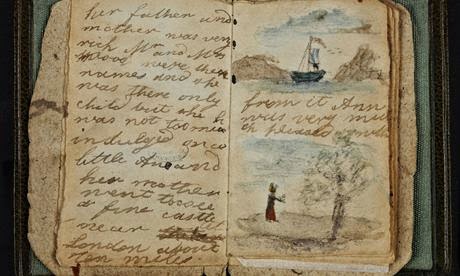 her father and
mother was very
rich Mr and Mrs
Wood were there
names and she
was there only
child but she
was not too much
indulged once
little Ane and
her mother
went to see
a fine castle
near
London about
ten miles
from it Ann
was very muc
h pleased with